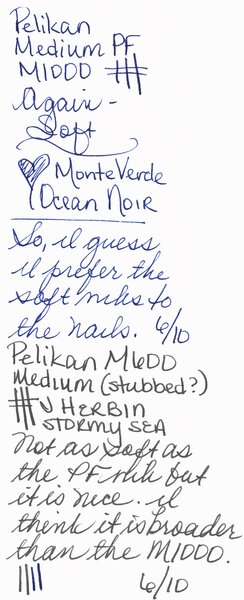 Pelikan
Medium PF
M1000
Again -
Soft
MonteVerde
Ocean Noir
So, I guess
I prefer the
soft nibs to
the nails. 6/10
Pelikan M600
Medium (stubbed?)
J HERBIN
STORMY SEA
Not as soft as
the PF nib but
it is nice. I
think it is broader
than the M1000.
6/10